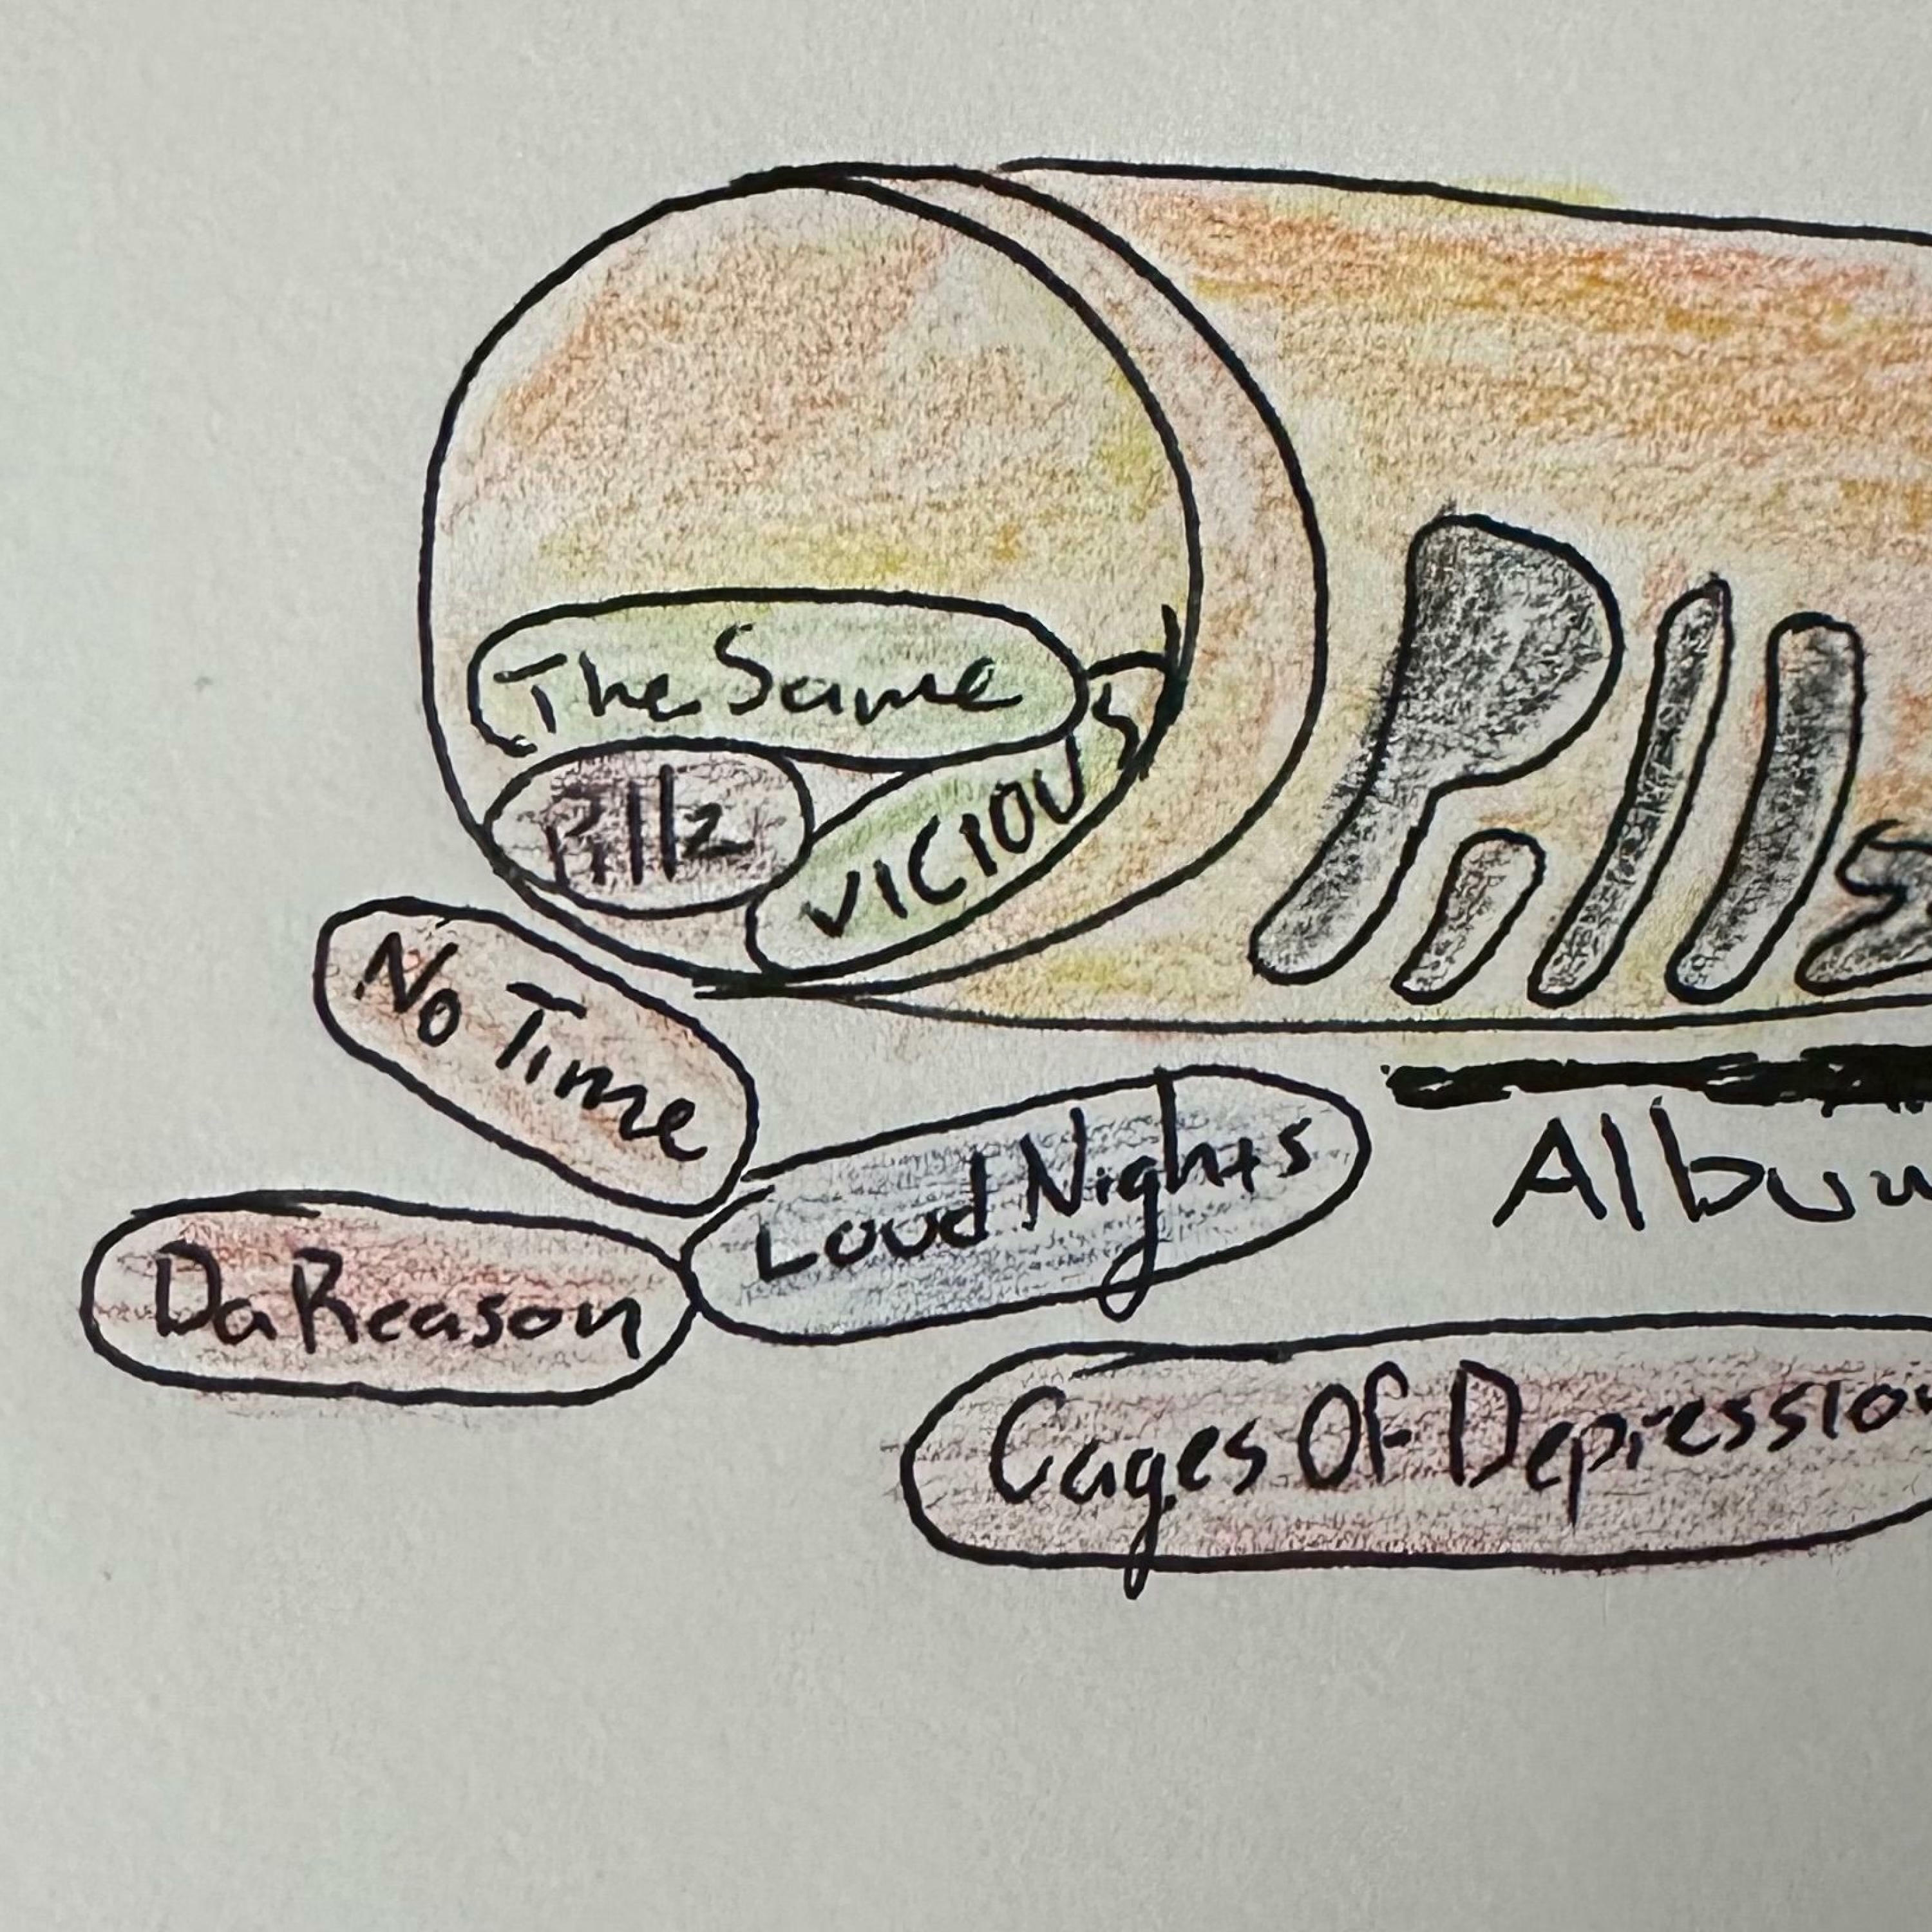 The Same
Pillz
VICIOUS
Pillz
No Time
Loud Nights
Album
Da Reason
Cages Of Depression